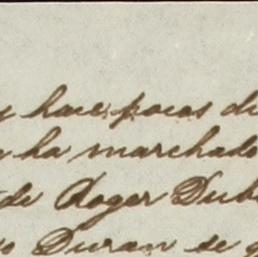 y hace pocas di
ha marchado
de Roger Dub
o Duran se q